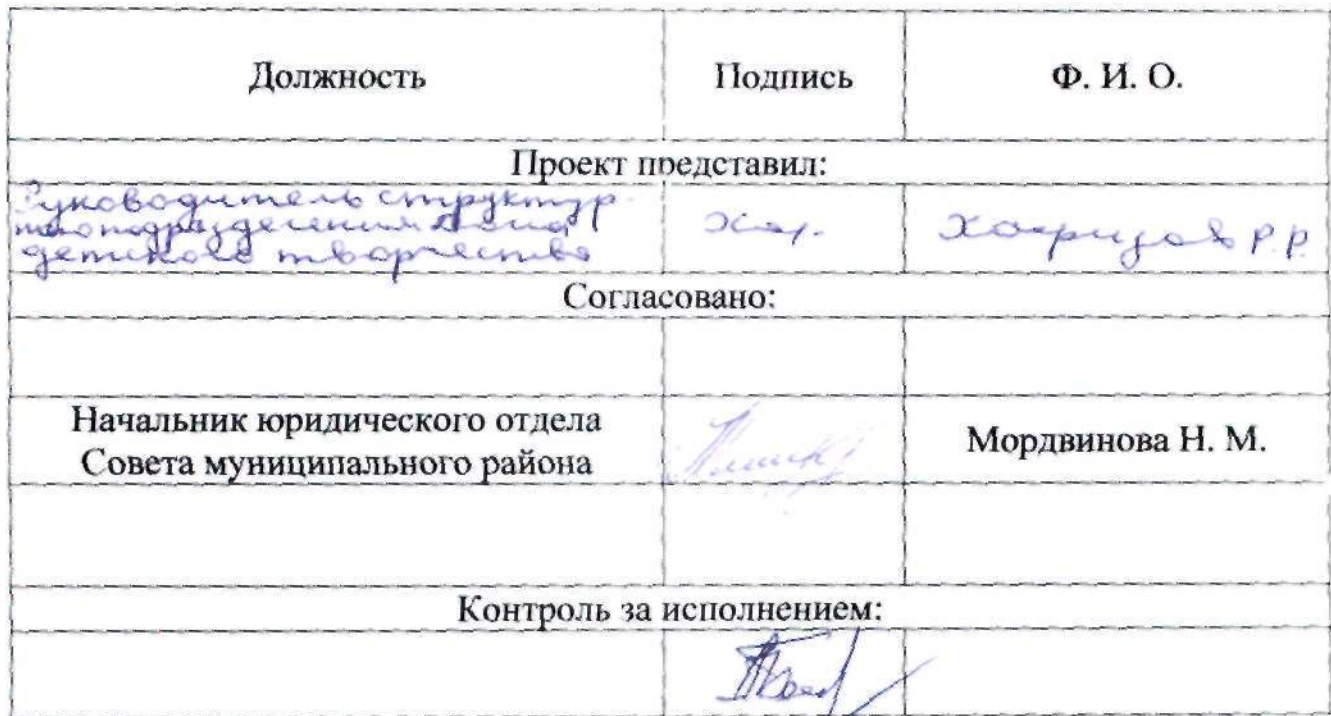 Должность Подпись Ф. И. О.
Проект представил:
Руководитель структур-
ного подразделения Дома
детского творчества
Хаф. Хафизов Р.Р.
Согласовано:
Начальник юридического отдела
Совета муниципального района
Мордвинова Н. М.
Контроль за исполнением: